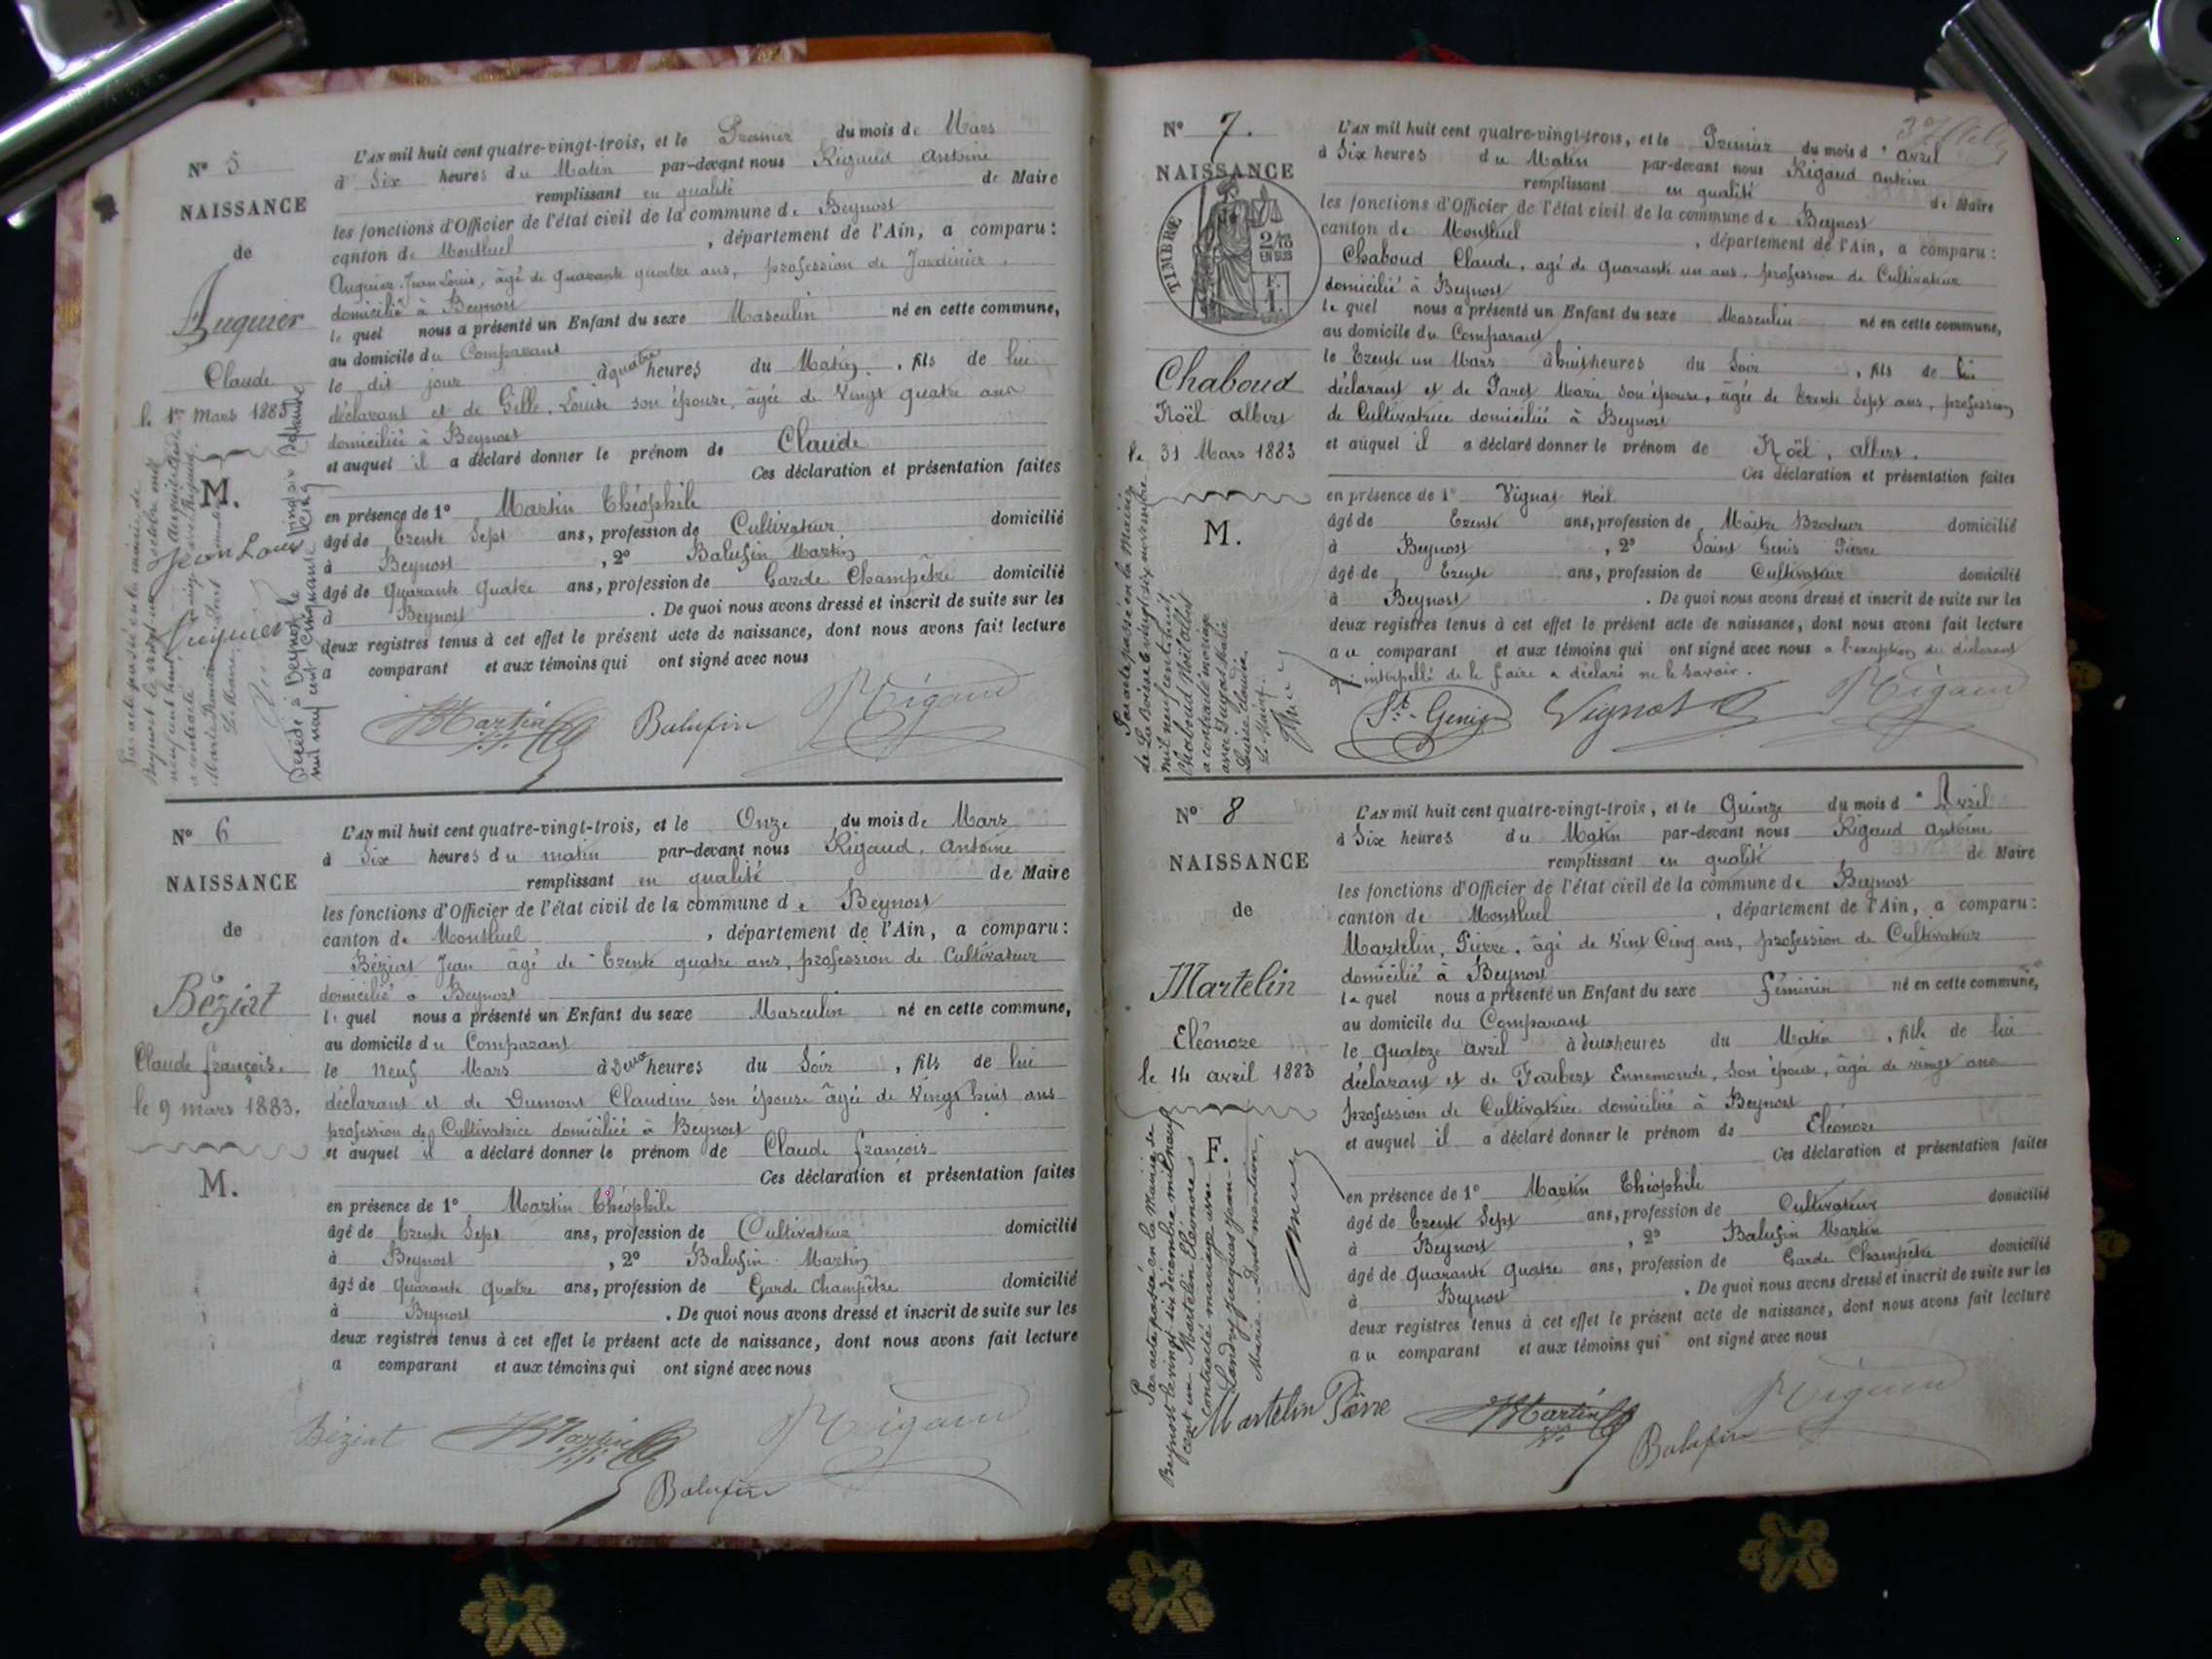 N° 5
NAISSANCE
de
Auguier
Claude
le 1er Mars 1883
M.
L'AN mil huit cent quatre-vingt-trois, et le Premier du mois de Mars
à Six heures du Matin par-devant nous Rigaud Antoine
remplissant en qualité de Maire
les fonctions d'Officier de l'état civil de la commune de Beynost
canton de Montluel, département de l'Ain, a comparu:
Auguier Jean Louis, âgé de quarante quatre ans, profession de Jardinier.
domicilié à Beynost
le quel nous a présenté un Enfant du sexe Masculin né en cette commune,
au domicile du Comparant
le dit jour à quatre heures du Matin, fils de lui
déclarant et de Gille, Louise son épouse, âgée de Vingt quatre ans
domiciliée à Beynost
et auquel il a déclaré donner le prénom de Claude
Ces déclaration et présentation faites
en présence de 1° Martin Théophile
âgé de trente Sept ans, profession de Cultivateur domicilié
à Beynost, 2° Balufin Martin
âgé de quarante quatre ans, profession de Garde Champêtre domicilié
à Beynost. De quoi nous avons dressé et inscrit de suite sur les
deux registres tenus à cet effet le présent acte de naissance, dont nous avons fait lecture
a comparant et aux témoins qui ont signé avec nous
Jean Louis
Auguier
Martin Balufin Rigaud
Décédé à Beynost le vingt six
mil neuf cent cinquante cinq
N° 6
NAISSANCE
de
Béziat
Claude françois.
le 9 mars 1883.
M.
L'AN mil huit cent quatre-vingt-trois, et le Onze du mois de Mars
à Six heures du matin par-devant nous Rigaud, Antoine
remplissant en qualité de Maire
les fonctions d'Officier de l'état civil de la commune de Beynost
canton de Montluel, département de l'Ain, a comparu:
Béziat Jean âgé de Trente quatre ans, profession de Cultivateur
domicilié à Beynost
le quel nous a présenté un Enfant du sexe Masculin né en cette commune,
au domicile du Comparant
le neuf Mars à Deux heures du Soir, fils de lui
déclarant et de Dumont Claudine son épouse âgée de Vingt huit ans
profession de Cultivatrice domiciliée à Beynost
et auquel il a déclaré donner le prénom de Claude françois
Ces déclaration et présentation faites
en présence de 1° Martin Théophile
âgé de trente Sept ans, profession de Cultivateur domicilié
à Beynost, 2° Balufin Martin
âgé de quarante quatre ans, profession de Garde Champêtre domicilié
à Beynost. De quoi nous avons dressé et inscrit de suite sur les
deux registres tenus à cet effet le présent acte de naissance, dont nous avons fait lecture
a comparant et aux témoins qui ont signé avec nous
Béziat Martin Rigaud
Balufin
N° 7.
NAISSANCE
TIMBRE
2/10
EN SUS
F.
1.
Chaboud
Noël albert
le 31 Mars 1883
M.
L'AN mil huit cent quatre-vingt-trois, et le Premier du mois d'avril
à Six heures du Matin par-devant nous Rigaud Antoine
remplissant en qualité de Maire
les fonctions d'Officier de l'état civil de la commune de Beynost
canton de Montluel, département de l'Ain, a comparu:
Chaboud Claude, agé de quarante un ans, profession de Cultivateur
domicilié à Beynost
le quel nous a présenté un Enfant du sexe Masculin né en cette commune,
au domicile du Comparant
le trente un Mars à huit heures du Soir, fils de lui
déclarant et de Paret Marie son épouse, âgée de trente Sept ans, profession
de Cultivatrice domiciliée à Beynost
et auquel il a déclaré donner le prénom de Noël, albert.
Ces déclaration et présentation faites
en présence de 1° Vignat Noël
âgé de trente ans, profession de Maitre Brodeur domicilié
à Beynost, 2° Saint Genis Pierre
âgé de trente ans, profession de Cultivateur domicilié
à Beynost. De quoi nous avons dressé et inscrit de suite sur les
deux registres tenus à cet effet le présent acte de naissance, dont nous avons fait lecture
au comparant et aux témoins qui ont signé avec nous a l'exception du déclarant
qui interpellé de le faire a déclaré ne le savoir.
St Genis Vignat Rigaud
Par acte passé en la Mairie
de La Boisse le vingt six novembre
mil neuf cent huit,
Chaboud Noël albert
a contracté mariage
N° 8
NAISSANCE
de
Martelin
Eléonore
le 14 avril 1883
F.
L'AN mil huit cent quatre-vingt-trois, et le Quinze du mois d'Avril
à Six heures du Matin par-devant nous Rigaud Antoine
remplissant en qualité de Maire
les fonctions d'Officier de l'état civil de la commune de Beynost
canton de Montluel, département de l'Ain, a comparu:
Martelin, Pierre, âgé de Vint Cinq ans, profession de Cultivateur
domicilié à Beynost
le quel nous a présenté un Enfant du sexe féminin né en cette commune,
au domicile du Comparant
le quatoze avril à deux heures du Matin, fille de lui
déclarant et de Faubert Ennemonde, son épouse, âgée de vingt ans
profession de Cultivatrice domiciliée à Beynost
et auquel il a déclaré donner le prénom de Eléonore
Ces déclaration et présentation faites
en présence de 1° Martin Théophile
âgé de trente Sept ans, profession de Cultivateur domicilié
à Beynost, 2° Balufin Martin
âgé de quarante quatre ans, profession de Garde Champêtre domicilié
à Beynost. De quoi nous avons dressé et inscrit de suite sur les
deux registres tenus à cet effet le présent acte de naissance, dont nous avons fait lecture
au comparant et aux témoins qui ont signé avec nous
Martelin Pierre Martin Rigaud
Balufin
Par acte passé en la Mairie de
Beynost le vingt-six décembre mil neuf
cent un Martelin Eléonore a
contracté mariage avec
Landry Jacques Jean-
Marie. Dont mention,